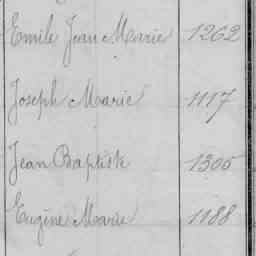 Emile Jean Marie 1262
Joseph Marie 1117
Jean Baptiste 1305
Eugène Marie 1188